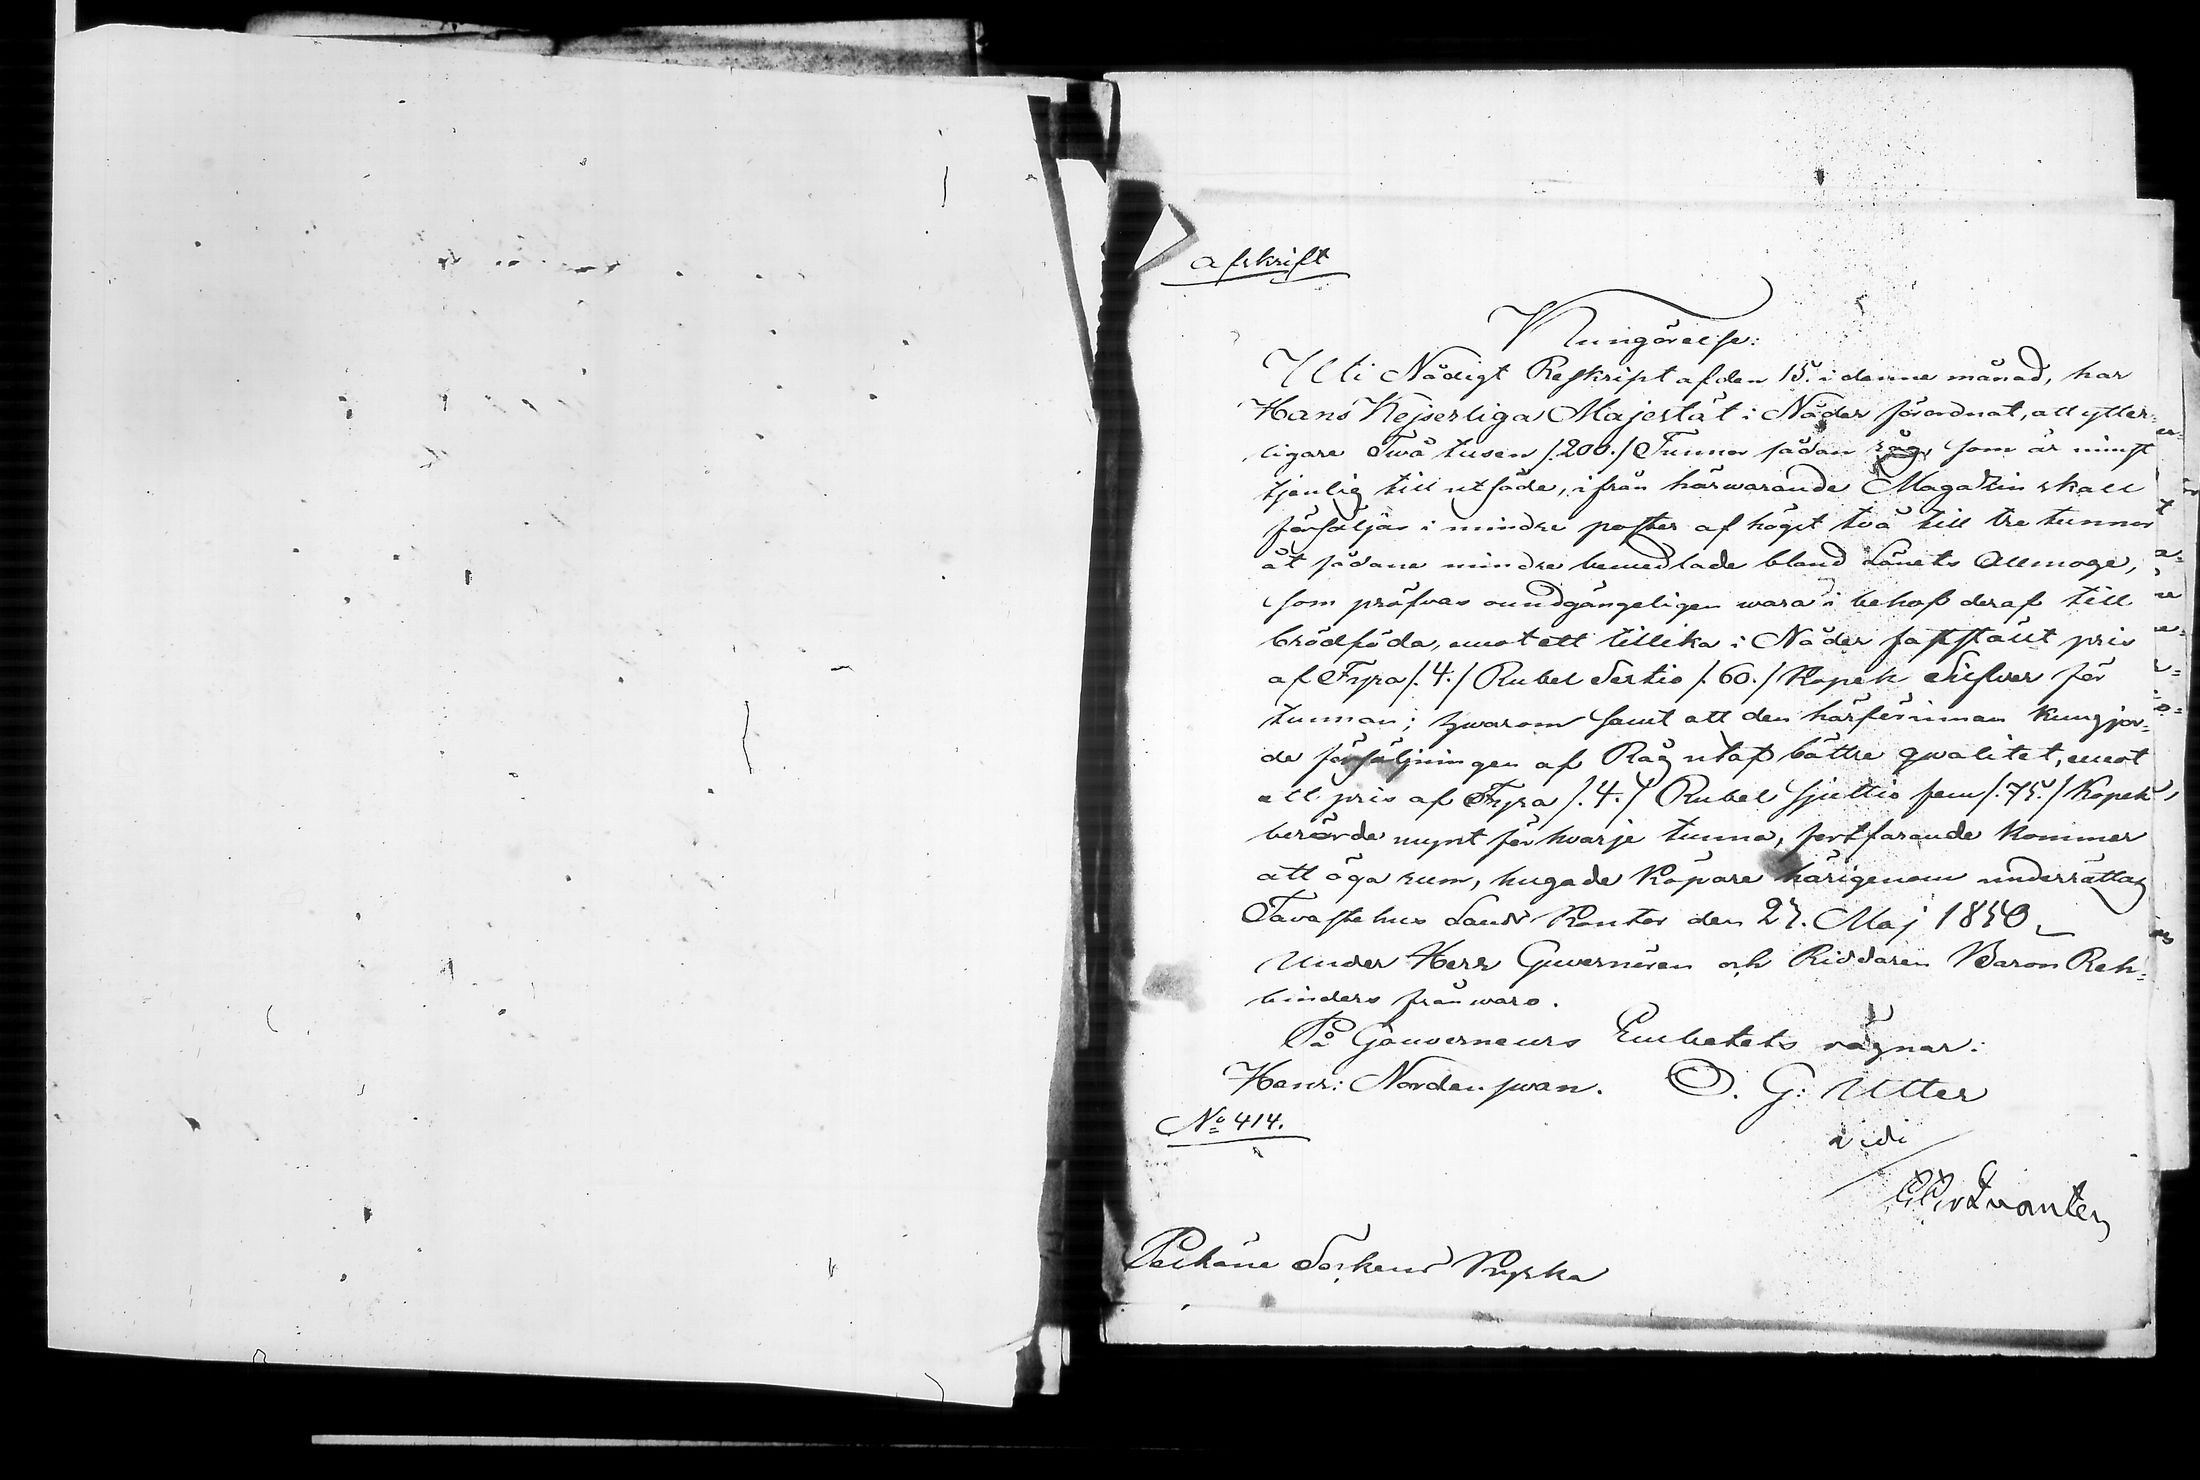 Afskrift
Kungörelse:
Uti Nådigt Reskript af den 15. i denne månad, har
Hans Kejserliga Majestät i Nåder förordnat, att ytter-
ligare Två tusen /.200./ Tunnor sådan råg, som är minst
tjenlig till utsäde, ifrån härwarande Magazin skall
försäljas i mindre poster af högst två till tre tunnor
åt sådane mindre bemedlade bland Länets Allmoge,
som pröfvas oundgängeligen wara i behof deraf till
brödföda, emot ett tillika i Nåder fastställt pris
af Fyra /.4./ Rubel Sextio /.60./ Kopek Silfver för
tunnan; hwarom samt att den härförinnan kungjor-
de försäljningen af Råg utaf bättre qwalitet, emot
ett pris af Fyra /.4./ Rubel sjuttio fem /.75./ Kopek,
berörde mynt för hvarje tunna, fortfarande kommer
att äga rum, hugade Köpare härigenom underrättas
Tavastehus Lands Kontor den 27. Maj 1850.
Under Herr Guvernören och Riddaren Baron Reh-
binders frånwaro.
På Gouverneurs Embetets vägnar:
Henr: Nordenswan. O. G: Utter
No 414.
vidi
v Qvanten
Pelkäne Sockens Kyrka